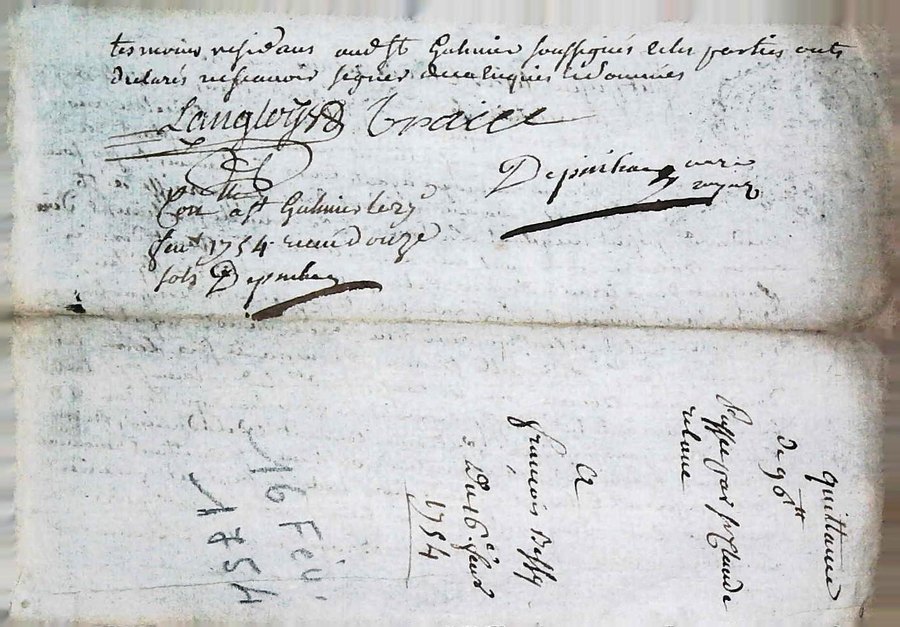 tesmoins residans audt St Galmier soussignés et les parties ont
declarés ne scavoir signer de ce enquis et sommés
Langloys Traict
Depinhac no.re royal
Con.llé a St Galmier le 23
fev.r 1754 reçu douze
sols Depinhac
quittance
de 96 tt
Passée par sr Claude
relave
A
francois Bessy
Du 16e fevr
1754
16 Fev.
1754